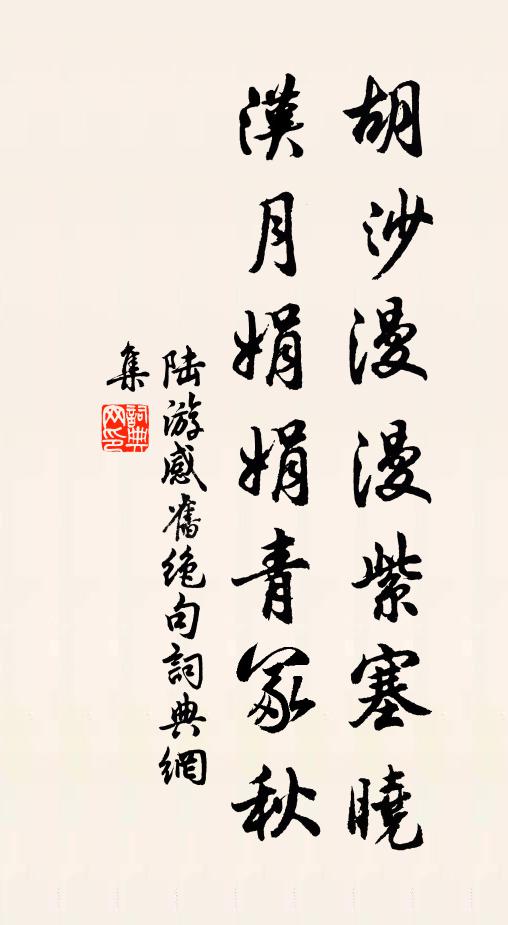 胡沙漫漫紫塞曉
漢月娟娟青冢秋
陆游感奮绝句詞典網
集
詞典网印